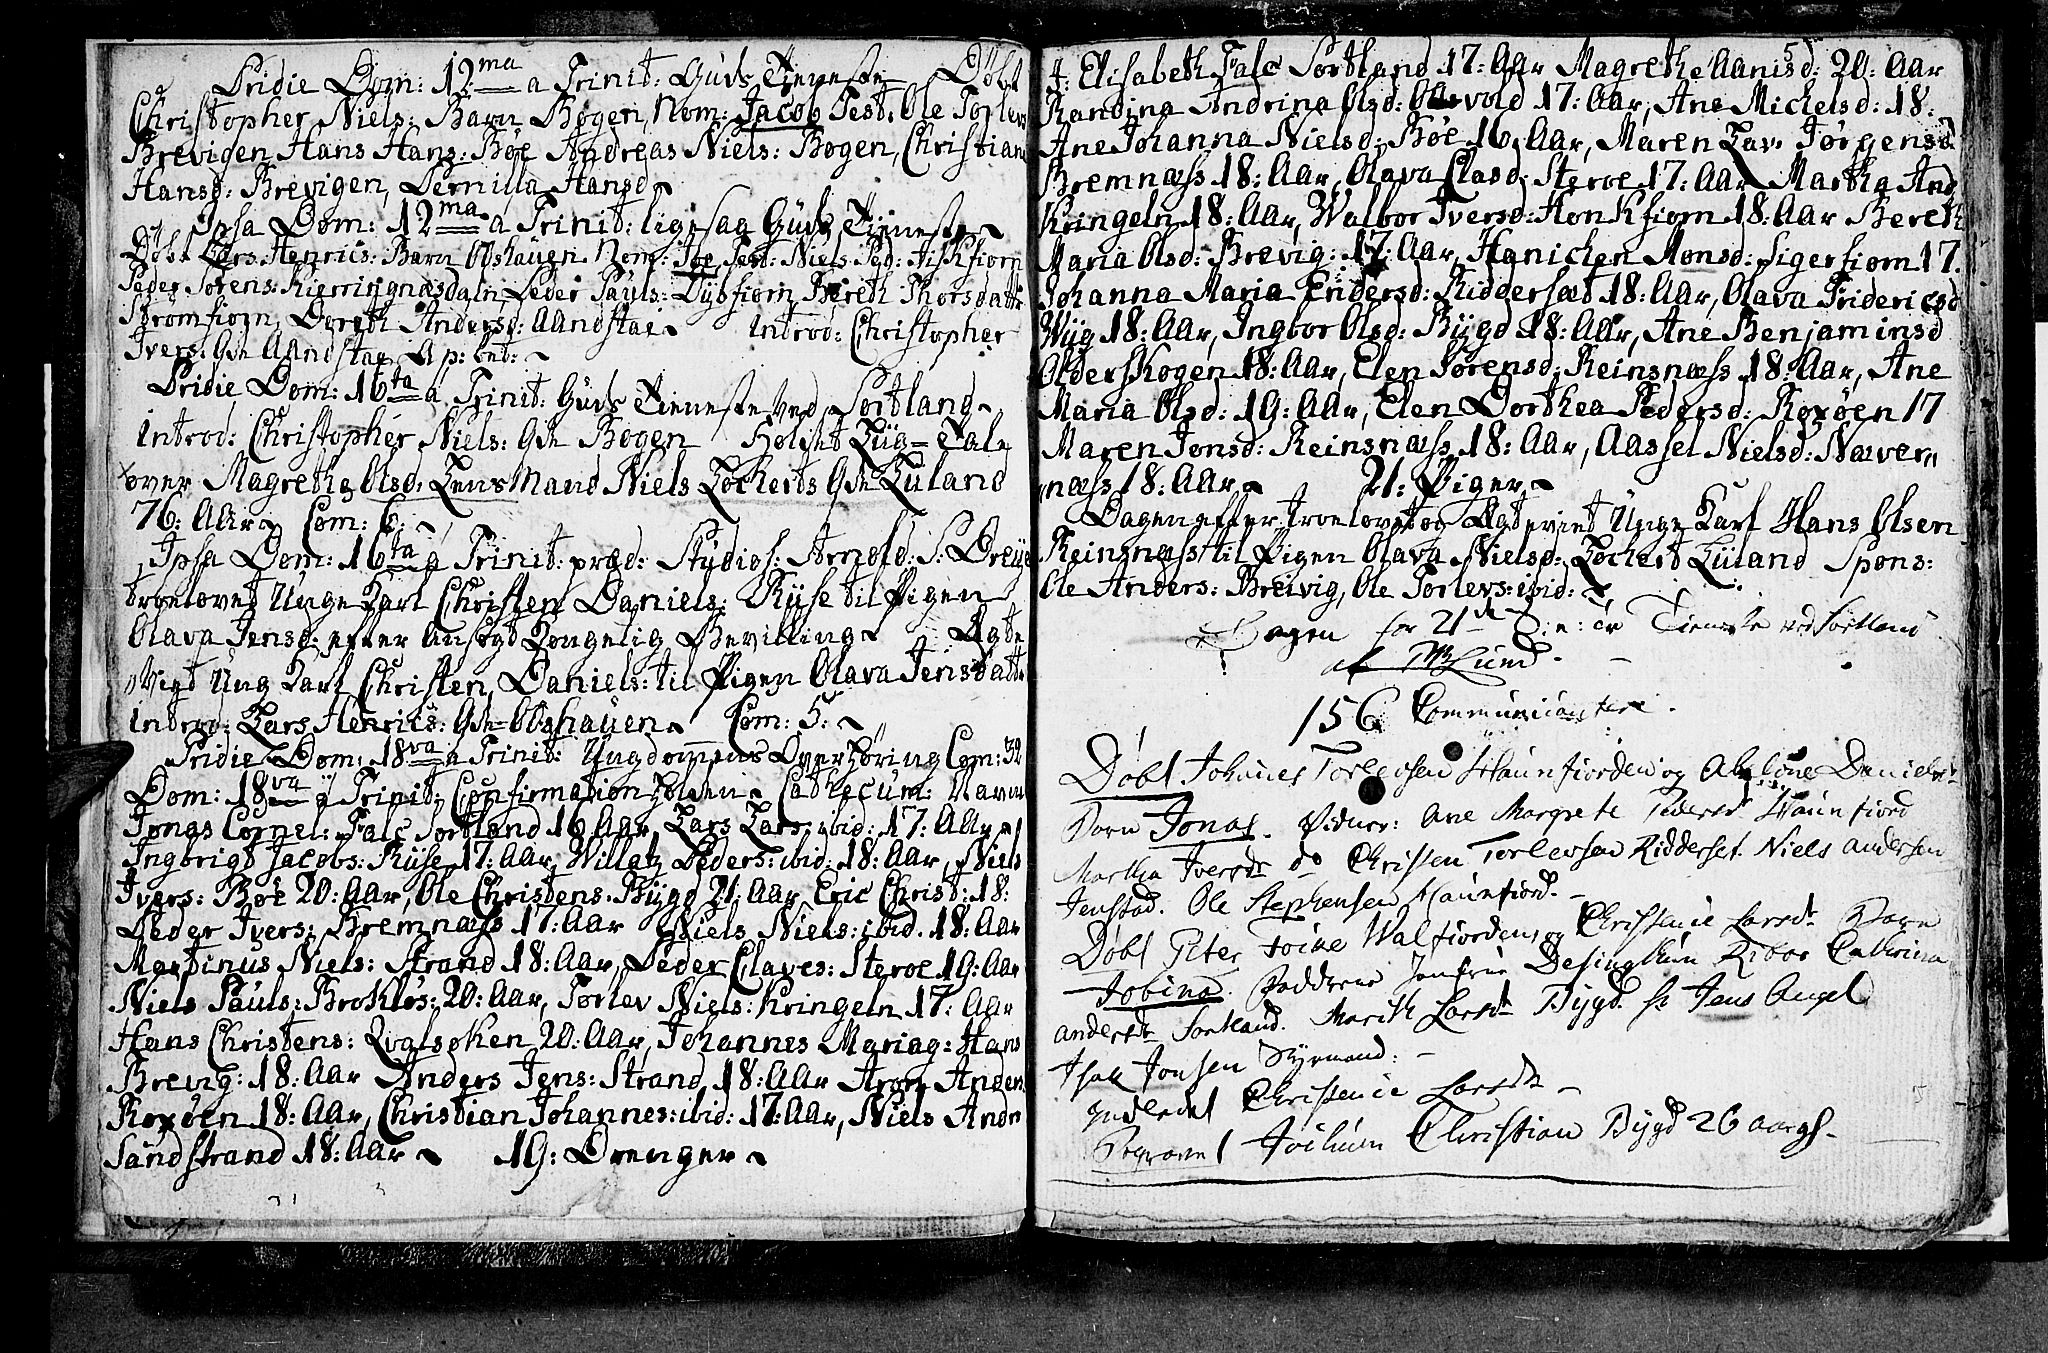 Pridie Dom: 12ma a Trinit: Guds Tieneste Døbt
Christopher Niels: Barn Bogen, Nom: Jacob Test: Ole Torlevs
Brevigen Hans Hans: Bøe Andreas Niels: Bogen, Christian
Hansd: Brevigen, Pernilla Hansd
Ipsa Dom: 12ma a Trinit: ligesaa Guds Tieneste
Døbt Lars Henrics: Barn Obshauen Nom: Joe Test: Niels Ped:
Peder Sørens: Kierringnæsdaln Peder Pauls: Dybfiorn Bereth Thorsdattr
Strømfiorn, Doreth Andersd: Aandstae Introd: Christopher
Ivers: Qde Aandstae Ap: bet:
Pridie Dom: 16ta a Trinit: Guds Tieneste ved Sortland
Introd: Christopher Niels: Qde Bogen Holdt Liig-Tale
over Magrethe Olsd: Lens Mand Niels Lockerts Qde Kuland
76: Aar Com: 6:
Ipsa Dom: 16ta a Trinit: præd: Studios: Arnold: S: Dreye
troelovet Unge Karl Christen Daniels: Kuse til Pigen
Olava Jensd: efter ansøgt Kongelig Bevilling Ægte
Viet Ung Karl Christen Daniels: til Pigen Olava Jensdattr
Introd: Lars Henrics: Qde Obshauen Com: 5:
Pridie Dom: 18va a Trinit: Ungdommens Overhøring Com: 32
Dom: 18va a Trinit: Confirmation Cathecum: Navne
Jonas Cornel: Falc Sortland 16 Aar, Lars Lars: ibid: 17: Aar
Ingbrigt Jacobs: Kuse 17: Aar, Willatz Peders: ibid: 18: Aar, Niels
Ivers: Bøe 20: Aar, Ole Christens: Bygd 21: Aar Eric Christ: 18:
Peder Ivers: Bremnæss 17: Aar Niels Niels: ibid. 18: Aar
Martinus Niels: Strand 18: Aar, Peder Clayes: Steroe 19: Aar
Niels Pauls: Brokløs: 20: Aar, Torlev Niels: Kringeln 17: Aar
Hans Christens: Qvalsøken 20: Aar, Johannes Mariag: Hans
Brevig: 18: Aar Anders Jens: Strand 18: Aar Aron Anders
Roxøen 18: Aar, Christian Johannes: ibid: 17: Aar, Niels Andrs
Sandstrand 18: Aar 19: Drenger
J: Elisabeth Falc Sortland 17: Aar Magrethe Aanisd: 20: Aar
Randina Andrina Olsd: 17: Aar, Ane Michelsd: 18:
Ane Johanna Nielsd: Bøe 16: Aar, Maren Lav: Jørgensd
Bremnæss 18: Aar, Olava Clasd: Steroe 17: Aar Martha And
Kringeln 18: Aar, Walbor Iversd: Honkfiorn 18: Aar Bereth
Maria Olsd: Brevig: 17: Aar, Hanichen Monsd: Sigerfiorn 17.
Johanna Maria Endersd: Riddersæt 18: Aar, Olava Fridericsd
Wiig 18: Aar, Ingbor Olsd: Bygd 18: Aar, Ane Benjaminsd
Olderskogen 18: Aar, Elen Sørensd: Reinsnæss 18: Aar, Ane
Maria Olsd: 19: Aar, Elen Dorthea Pedersd: Roxøen 17
Maren Jonsd: Reinsnæss 18: Aar, Aassel Nielsd: Næver
næss 18: Aar 21: Piger
Dagen efter troelovet og Ægteviet Unge Karl Hans Olsen
Reinsnæss til Pigen Olava Nielsd: Lockert Kuland Spons:
Ole Anders: Breivig, Ole Torlevs: ibid:
Dagen for 21de Tieneste ved Sortland
af Lund.
156 Communicantere.
Døbt Johanes Torlevsen Haunfiorden og Abelone Danielsdr
Barn Jonas. Vidner: Ane Margrete Pedersdr Haunfiord
Martha Iversdr do Christen Torlevsen Ridderset. Niels Andersen
Jenstad. Ole Stephensen Haunfiord.
Døbt Peter Foixe Walfiorden og Christence Larsdr Barn
Jobina. Faddere Jomfrue Desington Catrina
Andersdr Sortland. Marith Larsdr Bygd Hr Jens Angel
Isak Jonsen Styrmand:
Inledet Christence Larsdr
Begravet Jochum Christian Bygd 26 aargl.